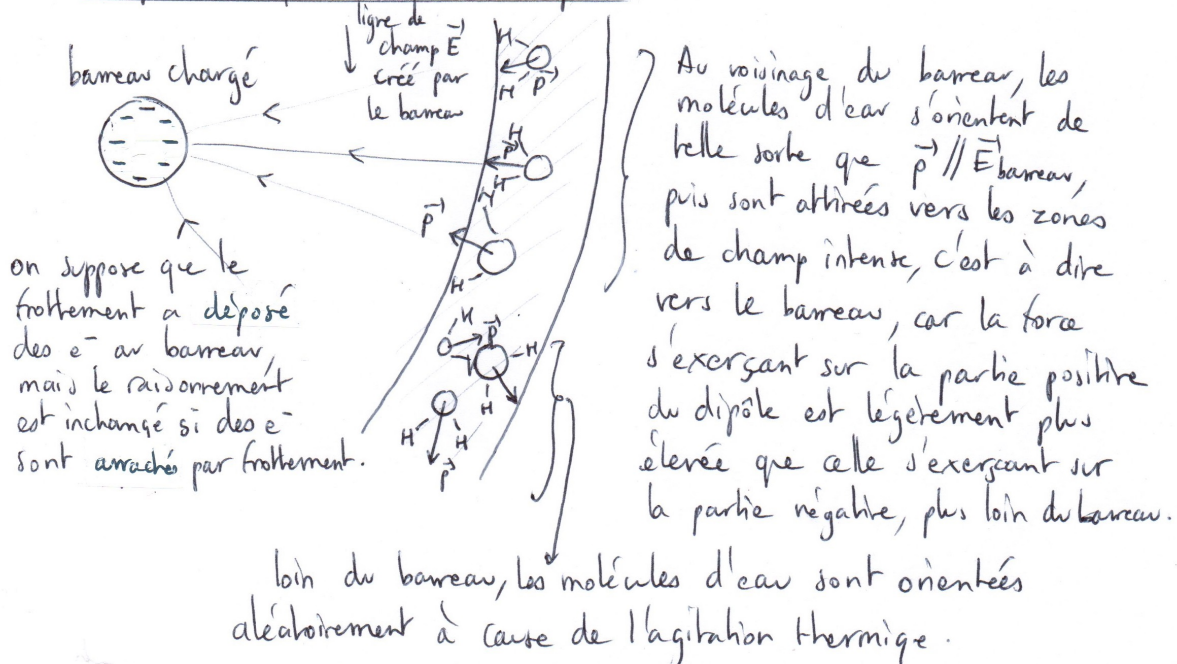 ligne de
champ E⃗
créé par
le barreau
barreau chargé
on suppose que le
frottement a déposé
des e⁻ au barreau,
mais le raisonnement
est inchangé si des e⁻
sont arrachés par frottement.
H
H
p⃗
H
p⃗
H
H
p⃗
H
H
p⃗
H
H
H
H
H
p⃗
Au voisinage du barreau, les
molécules d'eau s'orientent de
telle sorte que p⃗ // E⃗barreau,
puis sont attirées vers les zones
de champ intense, c'est à dire
vers le barreau, car la force
s'exerçant sur la partie positive
du dipôle est légèrement plus
élevée que celle s'exerçant sur
la partie négative, plus loin du barreau.
loin du barreau, les molécules d'eau sont orientées
aléatoirement à cause de l'agitation thermique.